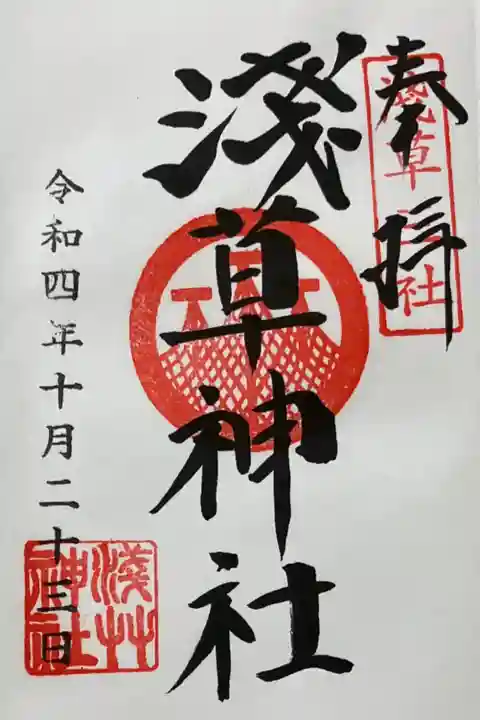 奉拝
淺草神社
淺草神社
令和四年十月二十三日
淺艸
神社